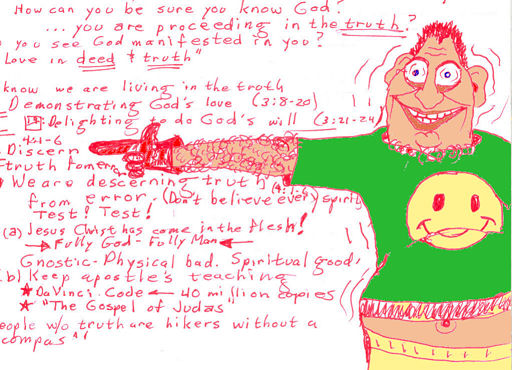 How can you be sure you know God?
... you are proceeding in the truth?
you see God manifested in you?
Love in deed & truth"
know we are living in the truth
Demonstrating God's love (3:8-20)
Delighting to do God's will (3:21-24)
4:1-6
Discern
truth
We are descerning truth (4:1-6)
from error. (Don't believe every spirit)
Test! Test!
(a) Jesus Christ has come in the flesh!
Fully God - Fully Man
Gnostic - Physical bad. Spiritual good,
b) Keep apostle's teaching
DaVinci Code 40 million copies
"The Gospel of Judas"
people w/o truth are hikers without a
compas